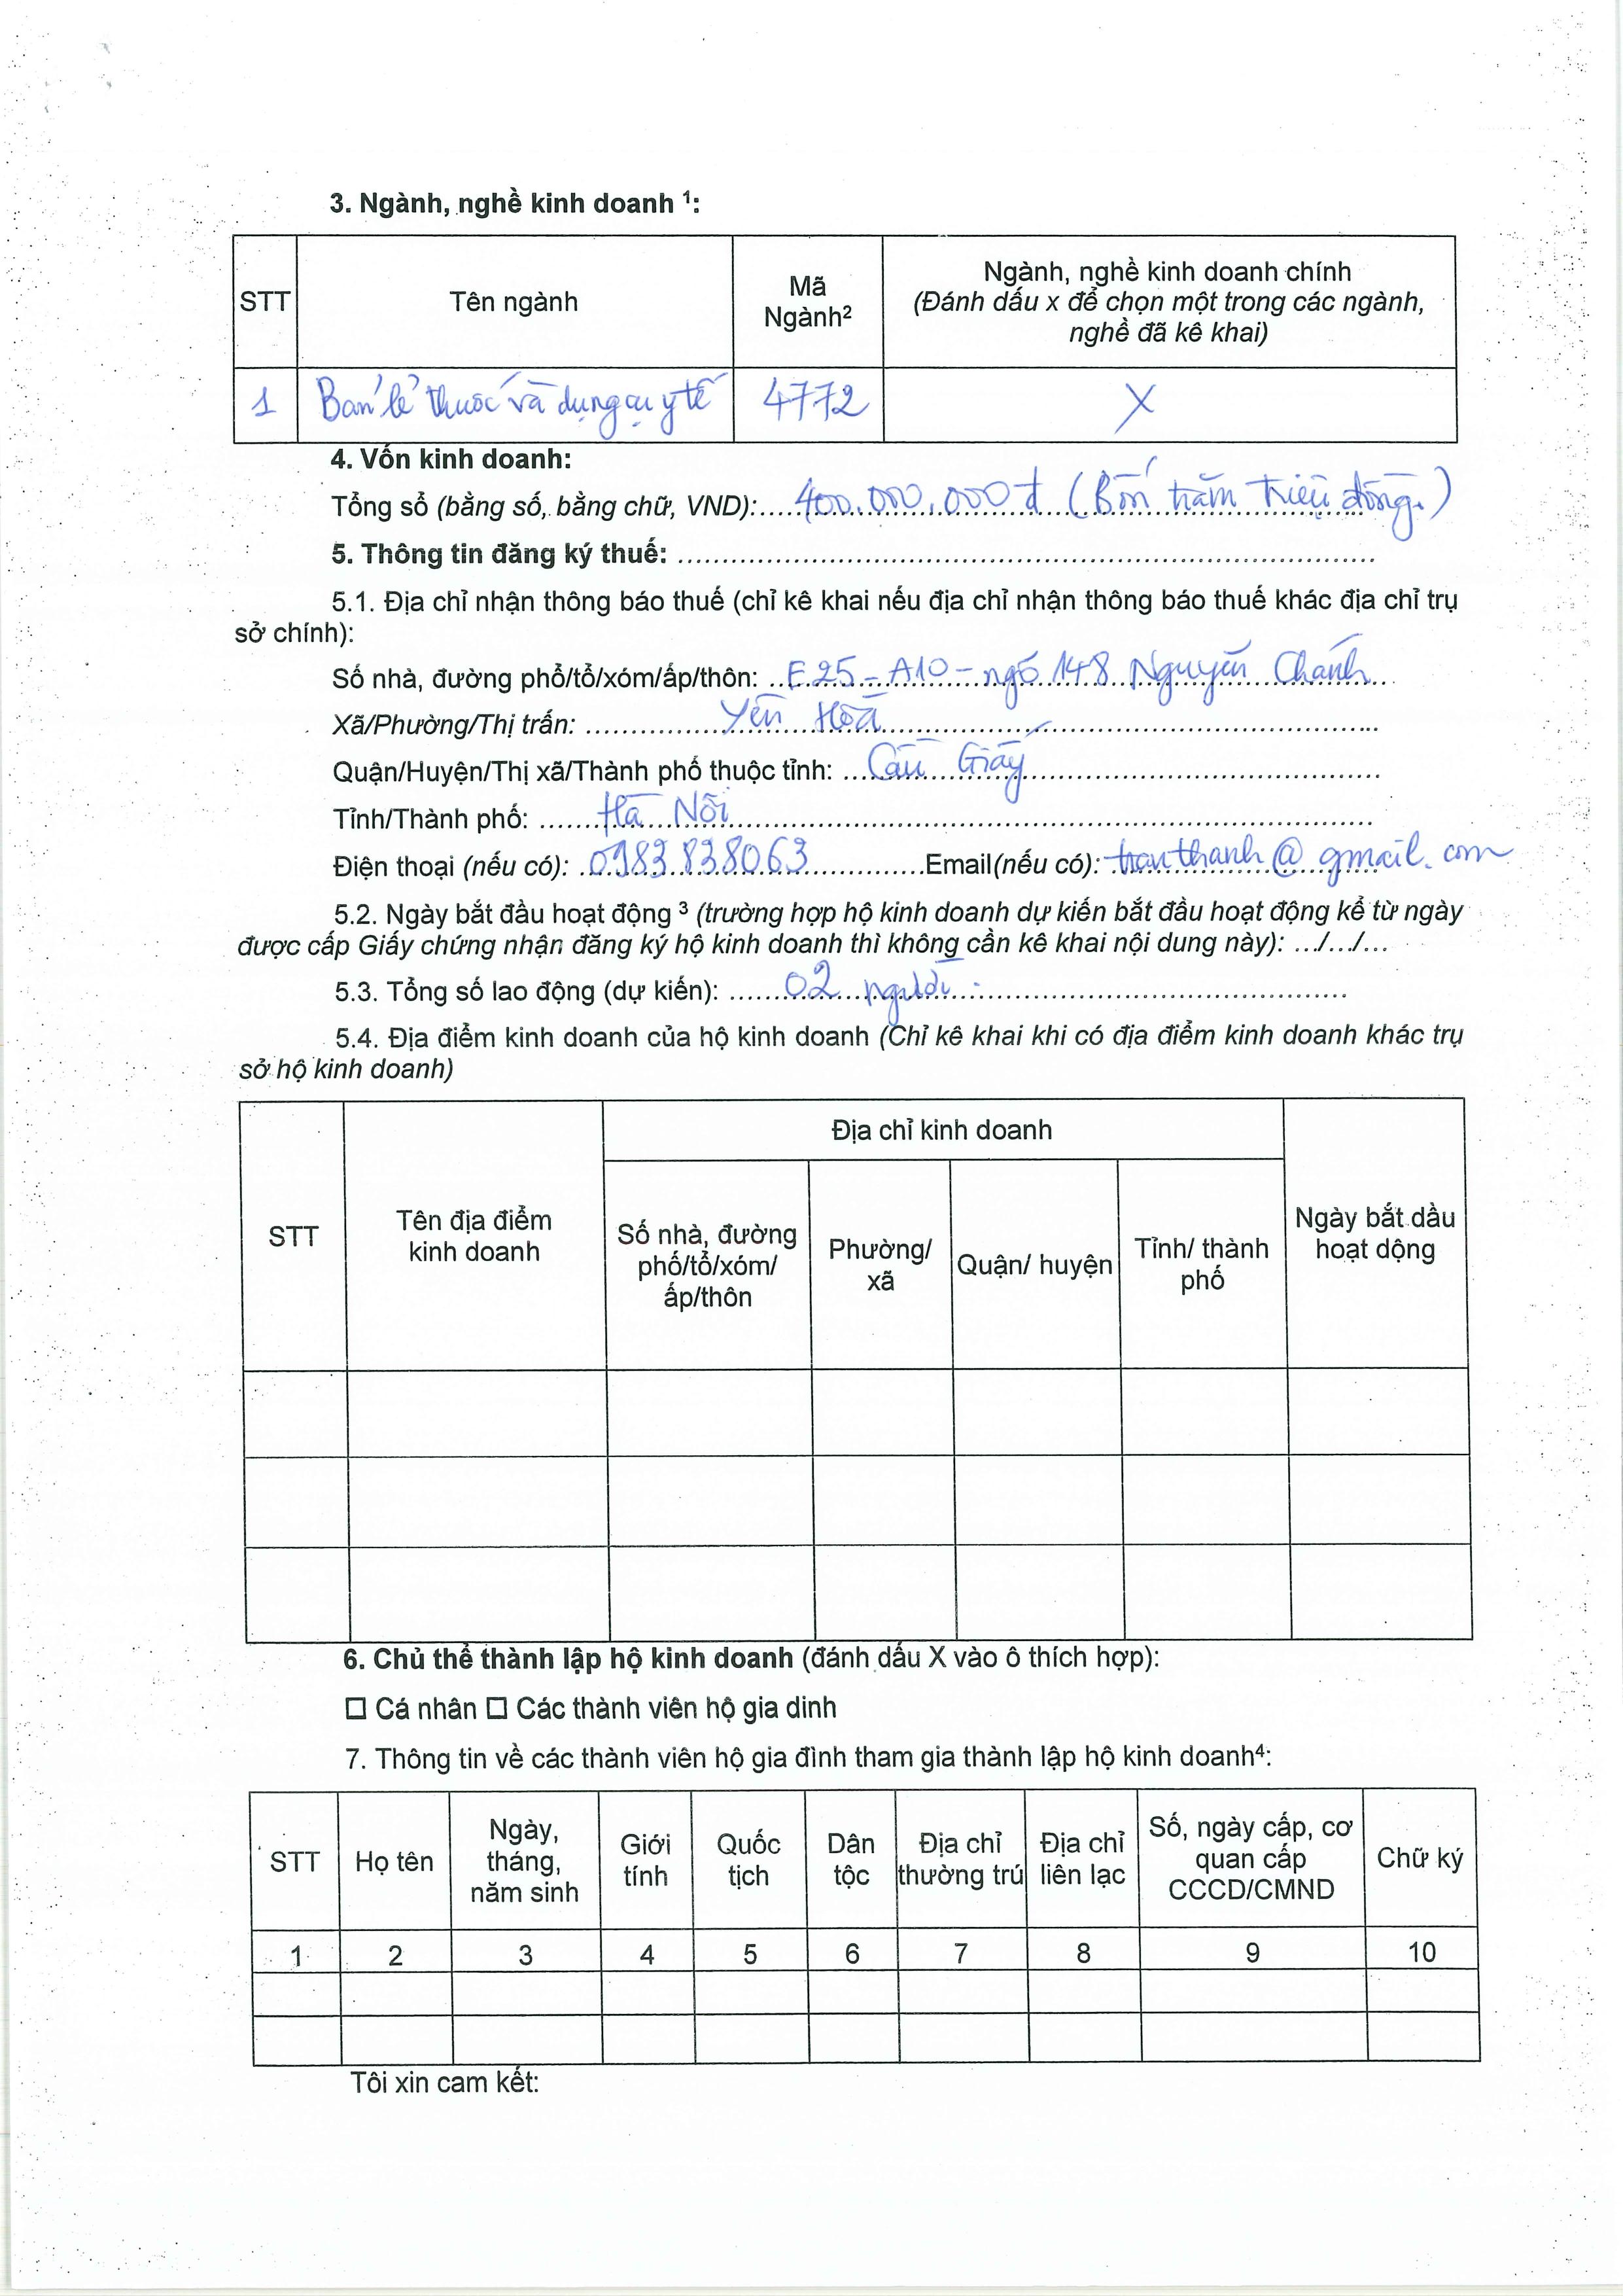 3. Ngành, nghề kinh doanh ¹:
STT
Tên ngành
Mã
Ngành²
Ngành, nghề kinh doanh chính
(Đánh dấu x để chọn một trong các ngành,
nghề đã kê khai)
1 Bán lẻ thuốc và dụng cụ y tế 4772 X
4. Vốn kinh doanh:
Tổng số (bằng số, bằng chữ, VND): 400.000.000đ (Bốn trăm triệu đồng.)
5. Thông tin đăng ký thuế:
5.1. Địa chỉ nhận thông báo thuế (chỉ kê khai nếu địa chỉ nhận thông báo thuế khác địa chỉ trụ
sở chính):
Số nhà, đường phố/tổ/xóm/ấp/thôn: E25-A10-ngõ 148 Nguyễn Chánh
Xã/Phường/Thị trấn: Yên Hoà
Quận/Huyện/Thị xã/Thành phố thuộc tỉnh: Cầu Giấy
Tỉnh/Thành phố: Hà Nội
Điện thoại (nếu có): 0983.838063 Email(nếu có): tranthanh@gmail.com
5.2. Ngày bắt đầu hoạt động ³ (trường hợp hộ kinh doanh dự kiến bắt đầu hoạt động kể từ ngày
được cấp Giấy chứng nhận đăng ký hộ kinh doanh thì không cần kê khai nội dung này): .../.../...
5.3. Tổng số lao động (dự kiến): 02 người.
5.4. Địa điểm kinh doanh của hộ kinh doanh (Chỉ kê khai khi có địa điểm kinh doanh khác trụ
sở hộ kinh doanh)
STT
Tên địa điểm
kinh doanh
Địa chỉ kinh doanh
Số nhà, đường
phố/tổ/xóm/
ấp/thôn
Phường/
xã
Quận/ huyện
Tỉnh/ thành
phố
Ngày bắt dầu
hoạt dộng
6. Chủ thể thành lập hộ kinh doanh (đánh dấu X vào ô thích hợp):
☐ Cá nhân ☐ Các thành viên hộ gia dinh
7. Thông tin về các thành viên hộ gia đình tham gia thành lập hộ kinh doanh⁴:
STT
Họ tên
Ngày,
tháng,
năm sinh
Giới
tính
Quốc
tịch
Dân
tộc
Địa chỉ
thường trú
Địa chỉ
liên lạc
Số, ngày cấp, cơ
quan cấp
CCCD/CMND
Chữ ký
1 2 3 4 5 6 7 8 9 10
Tôi xin cam kết: